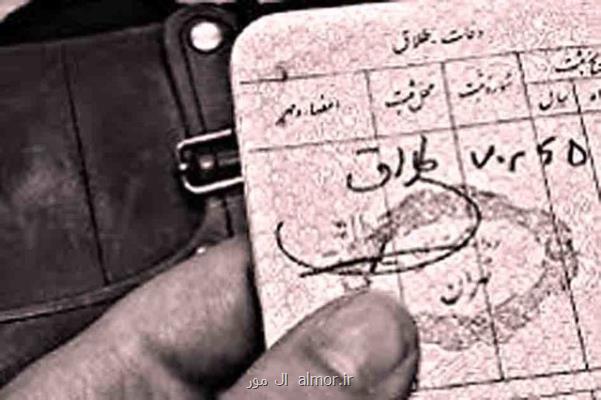 دفعات طلاق
ثبت
سال
شماره ثبت
محل ثبت
امضاء و مهر
طلاق ۷۰۲۶۵
تهران
ال مور almor.ir